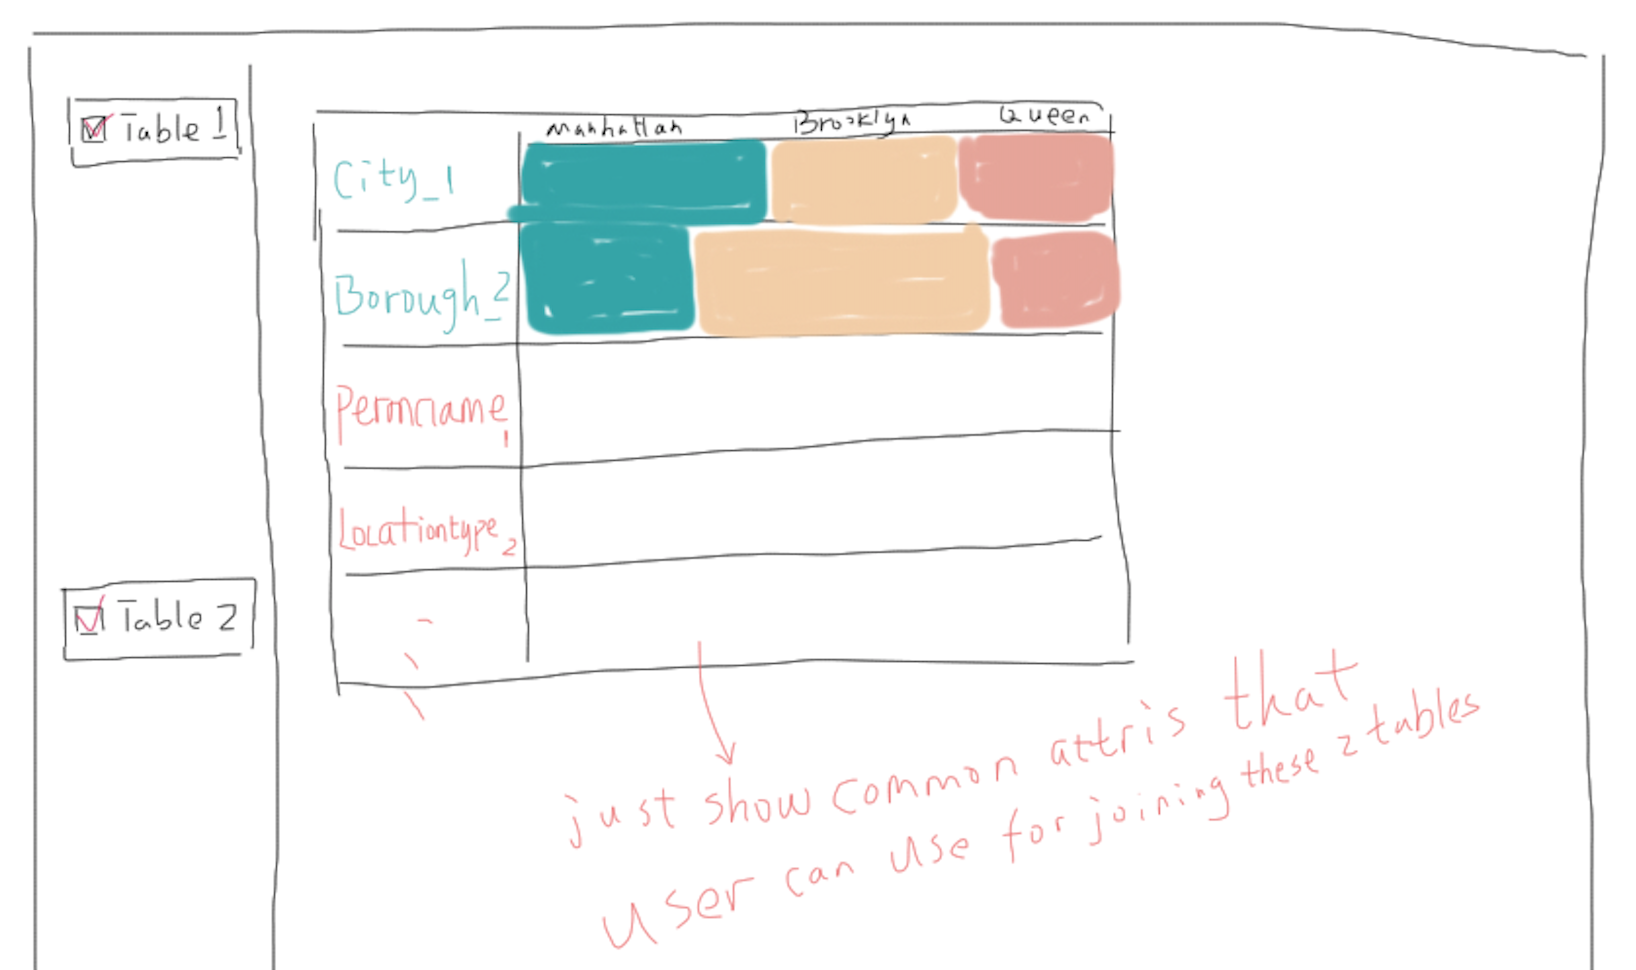 Table 1
Manhattan Brooklyn Queen
City_1
Borough_2
Locationtype 2
Table 2
just show common attris that
user can use for joining these 2 tables